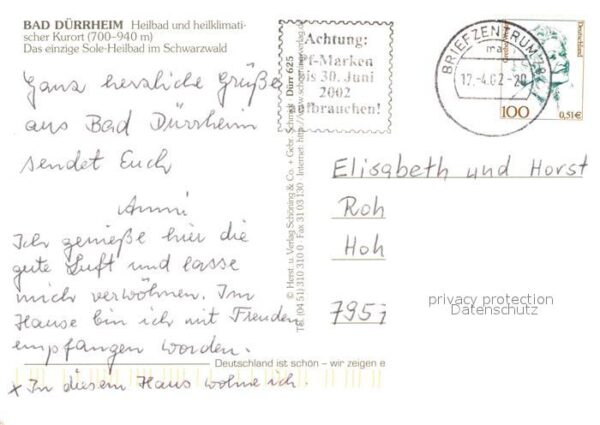 BAD DÜRRHEIM Heilbad und heilklimati-
scher Kurort (700–940 m)
Das einzige Sole-Heilbad im Schwarzwald
Ganz herzliche Grüße
aus Bad Dürrheim
sendet Euch
Anni
Ich genieße hier die
gute Luft und lasse
mich verwöhnen. Im
Hause bin ich mit Freuden
empfangen worden.
Deutschland ist schön – wir zeigen e
x In diesem Haus wohne ich.
© Herst. u. Verlag Schöning & Co. + Gebr. Schmidt Dürr 625
Tel. (04 51) 310 310 0 · Fax 31 03 130 · Internet: http://www.schoening-verlag.de
Achtung:
Pf-Marken
bis 30. Juni
2002
aufbrauchen!
BRIEFZENTRUM 78
ma
12.-4.02-20
Deutschland
100
0,51€
Elisabeth und Horst
Roh
Hoh
795
privacy protection
Datenschutz